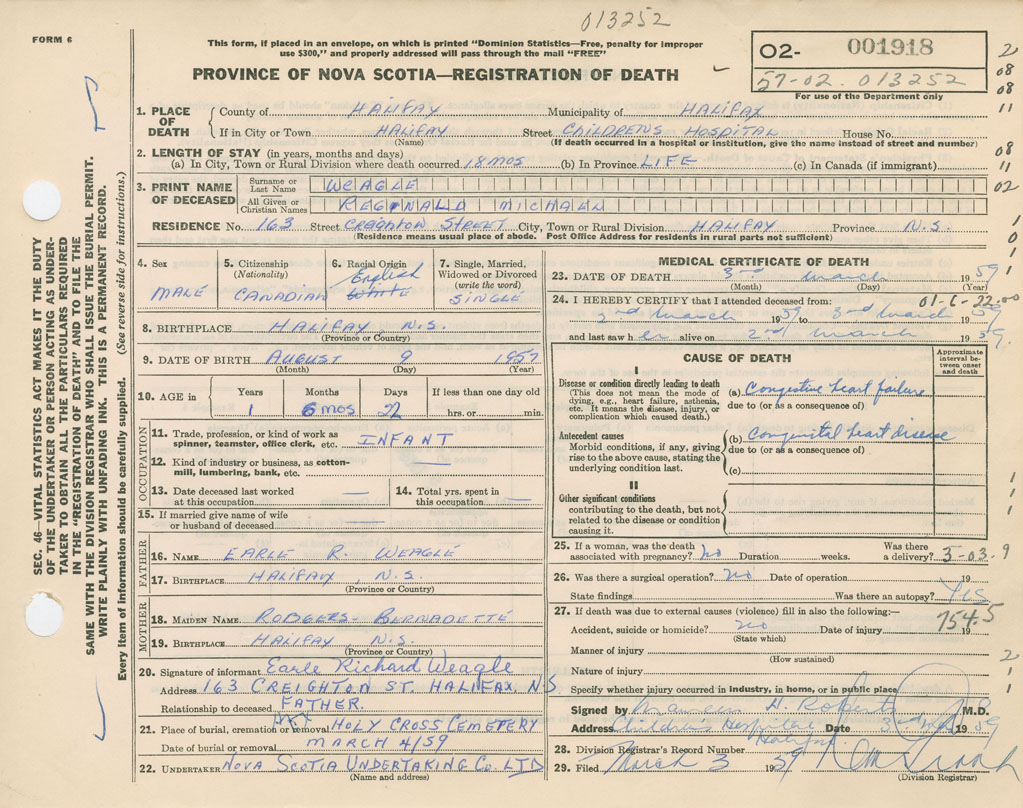 013252
FORM 6
This form, if placed in an envelope, on which is printed "Dominion Statistics—Free, penalty for improper
use $300," and properly addressed will pass through the mail "FREE"
PROVINCE OF NOVA SCOTIA—REGISTRATION OF DEATH
O2- 001918
57-02. 013252
For use of the Department only
2
08
08
11
08
11
02
1. PLACE OF DEATH
County of HALIFAX Municipality of HALIFAX
If in City or Town HALIFAX Street CHILDREN'S HOSPITAL House No.
(Name) (If death occurred in a hospital or institution, give the name instead of street and number)
2. LENGTH OF STAY (in years, months and days)
(a) In City, Town or Rural Division where death occurred 18 MOS (b) In Province LIFE (c) In Canada (if immigrant)
3. PRINT NAME OF DECEASED
Surname or Last Name WEAGLE
All Given or Christian Names REGINALD MICHAEL
RESIDENCE No. 163 Street CREIGHTON STREET City, Town or Rural Division HALIFAX Province N.S.
(Residence means usual place of abode. Post Office Address for residents in rural parts not sufficient)
4. Sex MALE
5. Citizenship (Nationality) CANADIAN
6. Racial Origin English White
7. Single, Married, Widowed or Divorced (write the word) SINGLE
8. BIRTHPLACE HALIFAX, N.S.
(Province or Country)
9. DATE OF BIRTH AUGUST 9 1957
(Month) (Day) (Year)
10. AGE in Years Months Days If less than one day
1 6 MOS 22 hrs. or min.
OCCUPATION
11. Trade, profession, or kind of work as spinner, teamster, office clerk, etc. INFANT
12. Kind of industry or business, as cotton-mill, lumbering, bank, etc. —
13. Date deceased last worked at this occupation —
14. Total yrs. spent in this occupation —
15. If married give name of wife or husband of deceased —
FATHER
16. NAME EARLE R. WEAGLE
17. BIRTHPLACE HALIFAX, N.S.
(Province or Country)
MOTHER
18. MAIDEN NAME RODGERS- BERNADETTE
19. BIRTHPLACE HALIFAX N.S.
(Province or Country)
20. Signature of informant Earle Richard Weagle
Address 163 CREIGHTON ST. HALIFAX, N.S.
Relationship to deceased FATHER.
21. Place of burial, cremation or removal HOLY CROSS CEMETERY
Date of burial or removal MARCH 4/59
22. UNDERTAKER NOVA SCOTIA UNDERTAKING CO. LTD
(Name and address)
MEDICAL CERTIFICATE OF DEATH
23. DATE OF DEATH 3rd March 1959
(Month) (Day) (Year)
01-6-22.00
24. I HEREBY CERTIFY that I attended deceased from:
2nd March 1959 to 3rd March 1959
and last saw h er alive on 2nd March 1959.
CAUSE OF DEATH
Approximate interval between onset and death
I
Disease or condition directly leading to death
(This does not mean the mode of dying, e.g., heart failure, asthenia, etc. It means the disease, injury, or complication which caused death.)
(a) Congestive heart failure
due to (or as a consequence of)
Antecedent causes
Morbid conditions, if any, giving rise to the above cause, stating the underlying condition last.
(b) Congenital heart disease
due to (or as a consequence of)
(c)
II
Other significant conditions
contributing to the death, but not related to the disease or condition causing it.
25. If a woman, was the death associated with pregnancy? No Duration weeks. Was there a delivery?
3-03.9
26. Was there a surgical operation? No Date of operation 19
State findings Was there an autopsy? Yes
27. If death was due to external causes (violence) fill in also the following:—
7545
Accident, suicide or homicide? No Date of injury 19
(State which)
Manner of injury
(How sustained)
Nature of injury
Specify whether injury occurred in industry, in home, or in public place
Signed by H. Roberts M.D.
Address Children's Hospital Halifax Date 3rd 1959
28. Division Registrar's Record Number
29. Filed March 3 1959
(Division Registrar)
SEC. 46—VITAL STATISTICS ACT MAKES IT THE DUTY
OF THE UNDERTAKER OR PERSON ACTING AS UNDER-
TAKER TO OBTAIN ALL THE PARTICULARS REQUIRED
IN THE "REGISTRATION OF DEATH" AND TO FILE THE
SAME WITH THE DIVISION REGISTRAR WHO SHALL ISSUE THE BURIAL PERMIT.
WRITE PLAINLY WITH UNFADING INK. THIS IS A PERMANENT RECORD.
Every item of information should be carefully supplied. (See reverse side for instructions.)